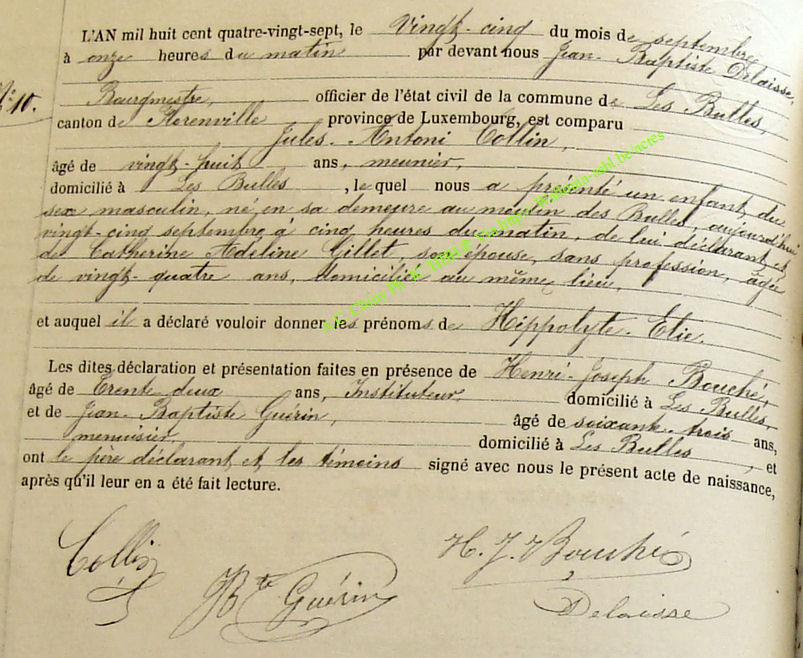 L'AN mil huit cent quatre-vingt-sept, le vingt-cinq du mois de septembre
à onze heures du matin par devant nous Jean-Baptiste Delaisse,
N° 10.
Bourgmestre, officier de l'état civil de la commune de Les Bulles,
canton de Florenville province de Luxembourg, est comparu
Jules-Antoni Collin,
âgé de vingt-huit ans, meunier,
domicilié à Les Bulles, lequel nous a présenté un enfant du
sex masculin, né en sa demeure au moulin des Bulles, aujourd'hui
vingt-cinq septembre à cinq heures du matin, de lui déclarant et
de Catherine Adeline Gillet, son épouse, sans profession, âgée
de vingt-quatre ans, domiciliée au même lieu,
et auquel il a déclaré vouloir donner les prénoms de Hippolyte-Elie.
Les dites déclaration et présentation faites en présence de Henri-Joseph Bouché,
âgé de trente deux ans, Instituteur, domicilié à Les Bulles,
et de Jean-Baptiste Guérin, âgé de soixante-trois ans,
menuisier, domicilié à Les Bulles, et
ont le père déclarant et les témoins signé avec nous le présent acte de naissance,
après qu'il leur en a été fait lecture.
Collin
H. J. Bouché
JBte Guérin
Delaisse